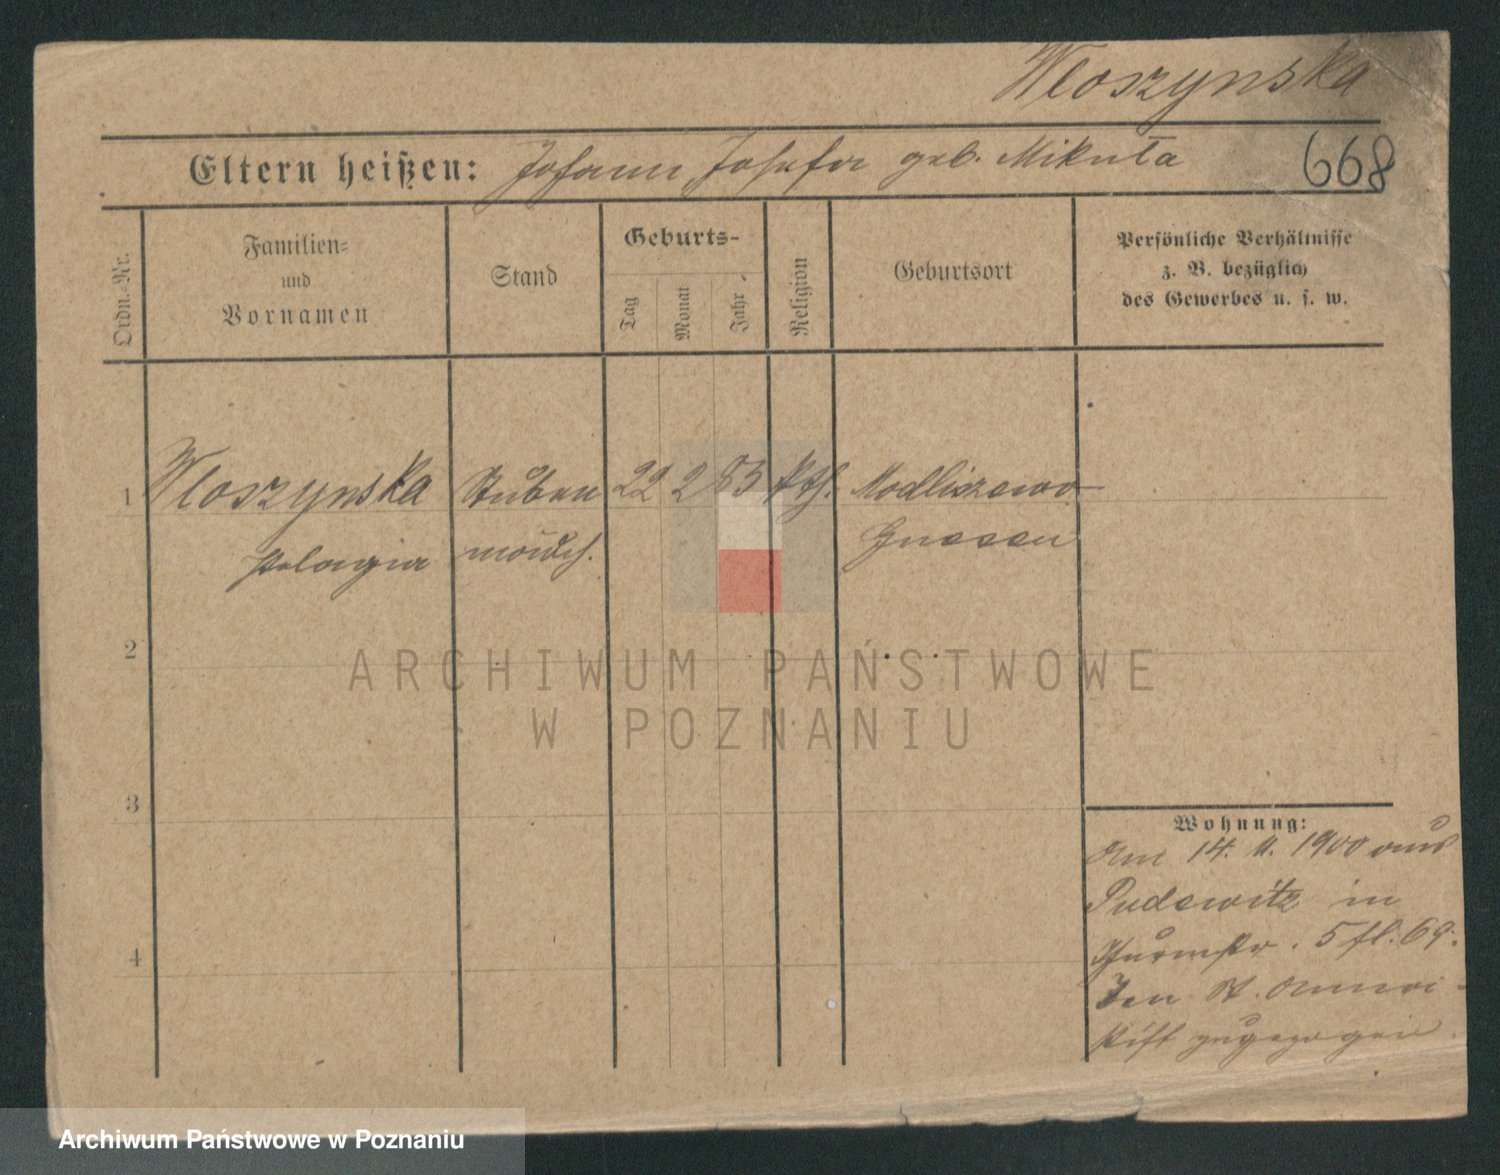 Wloszynska
668
Eltern heißen: Johann, Josefa geb. Mikuła
Ordn.-Nr.
Familien-
und
Vornamen
Stand
Geburts-
Tag
Monat
Jahr
Religion
Geburtsort
Persönliche Verhältnisse
z. B. bezüglich
des Gewerbes u. s. w.
1 Wloszynska Stuben 22 2 83 kth. Modliszewo
Pelagia mädch. Gnesen
2
3
4
Wohnung:
Am 14. 11. 1900 aus
Pudewitz in
Thurmstr. 5 fl. 69.
St. Anna
stift zugezogen
ARCHIWUM PAŃSTWOWE
W POZNANIU
Archiwum Państwowe w Poznaniu